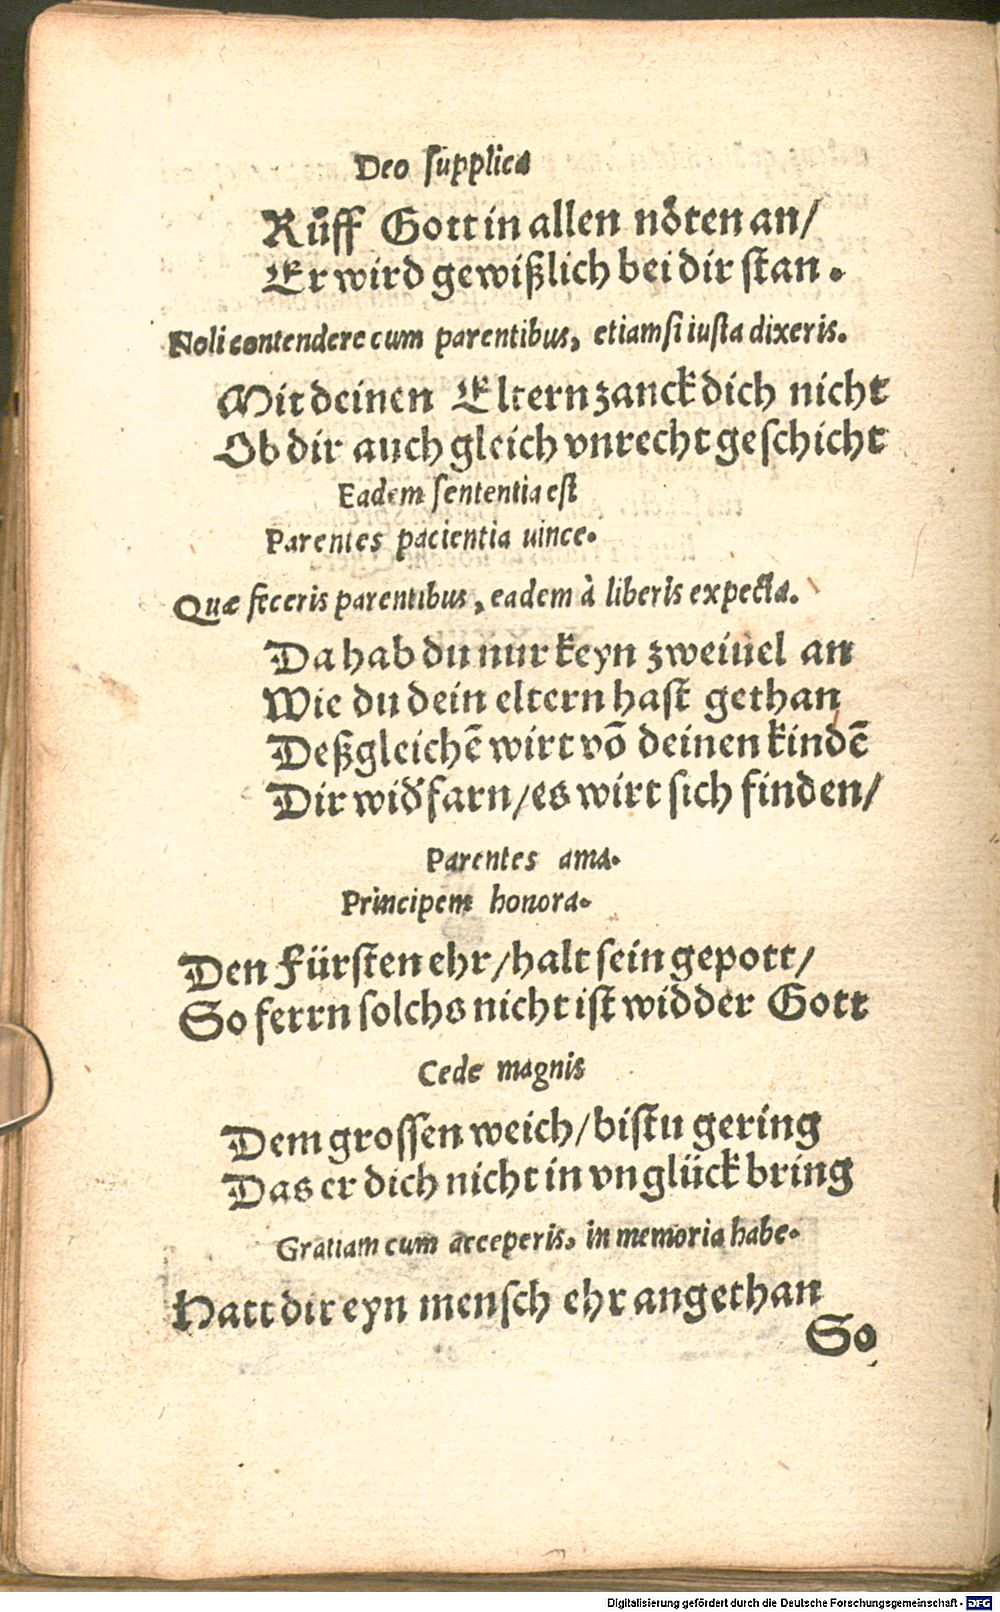 Deo supplica
Růff Gott in allen nöten an/
Er wird gewißlich bei dir stan.
Noli contendere cum parentibus, etiamsi iusta dixeris.
Mit deinen Eltern zanck dich nicht
Ob dir auch gleich vnrecht geschicht
Eadem sententia est
Parentes pacientia uince.
Quæ feceris parentibus, eadem à liberis expecta.
Da hab du nur keyn zweiuel an
Wie du dein eltern hast gethan
Deßgleichē wirt võ deinen kindē
Dir wid᷑farn/es wirt sich finden/
Parentes ama.
Principem honora.
Den Fürsten ehr/halt sein gepott/
So ferrn solchs nicht ist widder Gott
Cede magnis
Dem grossen weich/bistu gering
Das er dich nicht in vnglück bring
Gratiam cum acceperis, in memoria habe.
Hatt dir eyn mensch ehr angethan
So
Digitalisierung gefördert durch die Deutsche Forschungsgemeinschaft - DFG